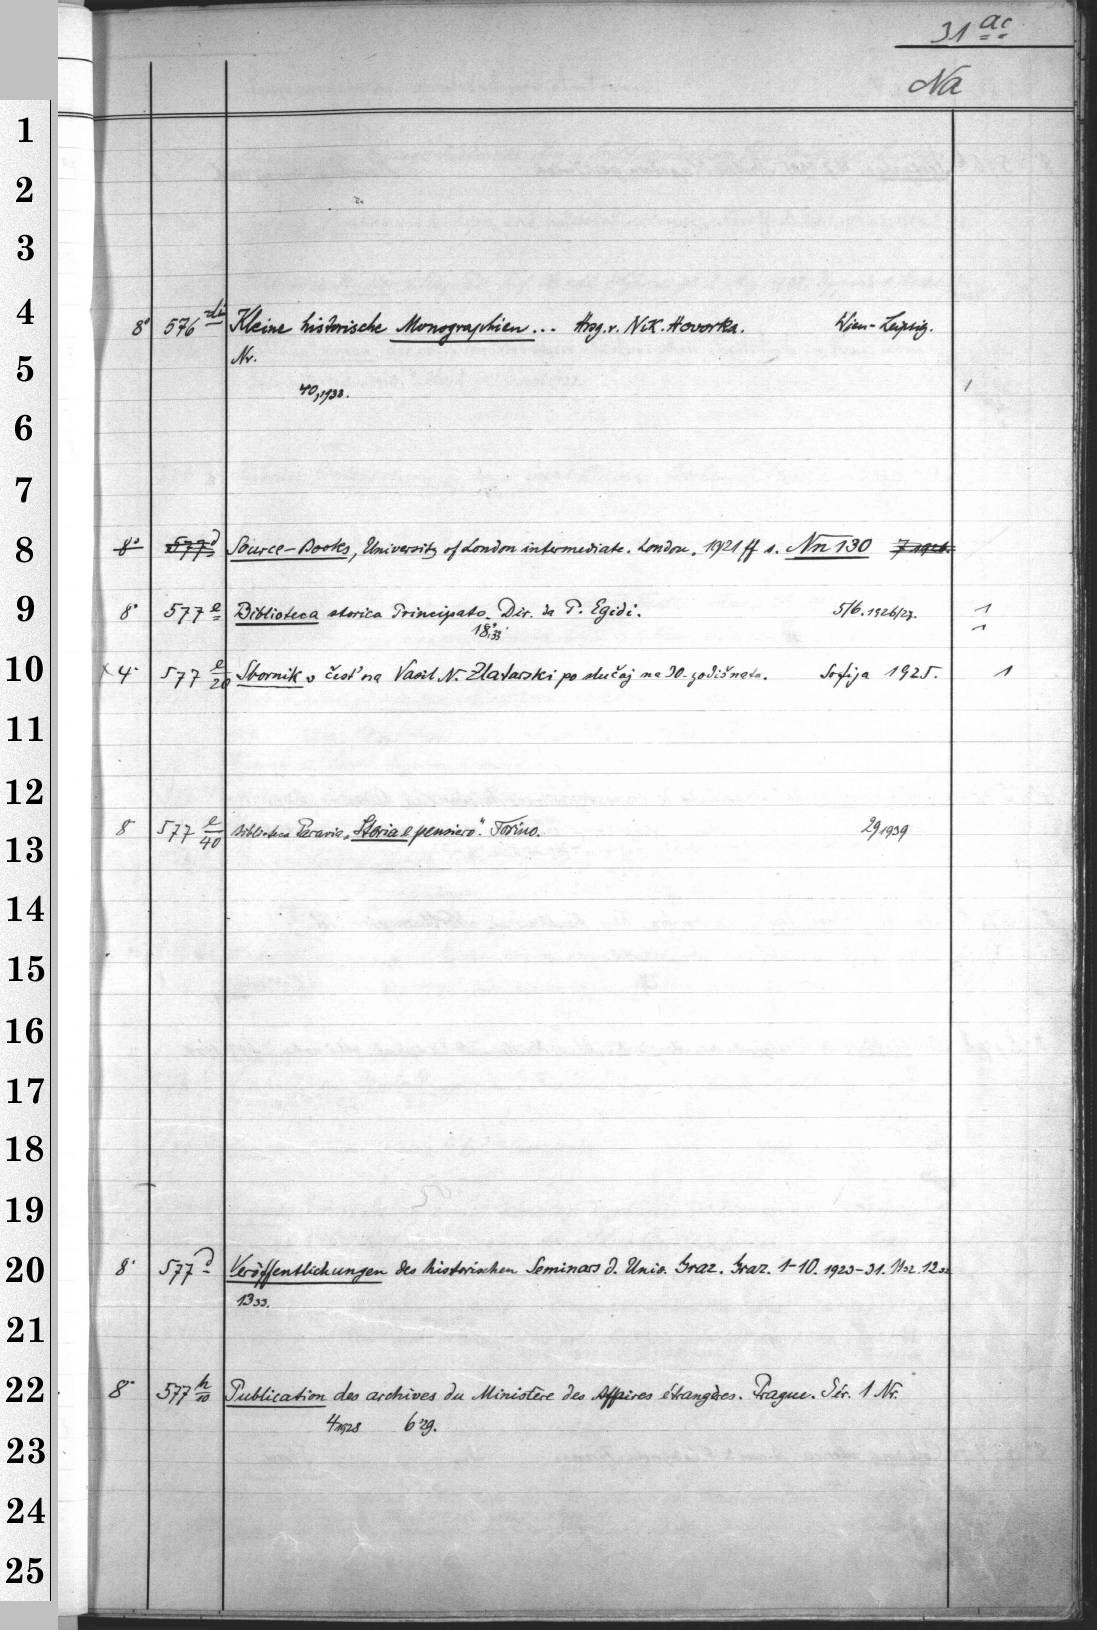 31 ac
Na
1
2
3
4 8° 576 Kleine historische Monographien ... Hrsg. v. Nik. Hovorka. Wien-Leipzig.
5 Nr.
40,1933. 1
6
7
8 8° 577d Source-Books, University of London intermediate. London. 1921 ff s. Nn 130 7 1926.
9 8° 577 e Biblioteca storica Principato. Dir. da P. Egidi. 5/6. 1926/27. 1
18,33 1
10 x 4° 577 e/20 Sbornik v čest' na Vasil N. Zlatarski po slučaj na 30-godišnata. Sofija 1925. 1
11
12
13 8 577 e/40 Biblioteca Paravia „Storia e pensiero“. Torino. 29 1939
14
15
16
17
18
19
20 8° 577 Veröffentlichungen des historischen Seminars d. Univ. Graz. Graz. 1-10. 1923-31. 11 32 12 32
13 33.
21
22 8° 577 h/10 Publication des archives du Ministère des Affaires étrangères. Prague. Sér. 1 Nr.
4 1928 6 '29.
23
24
25